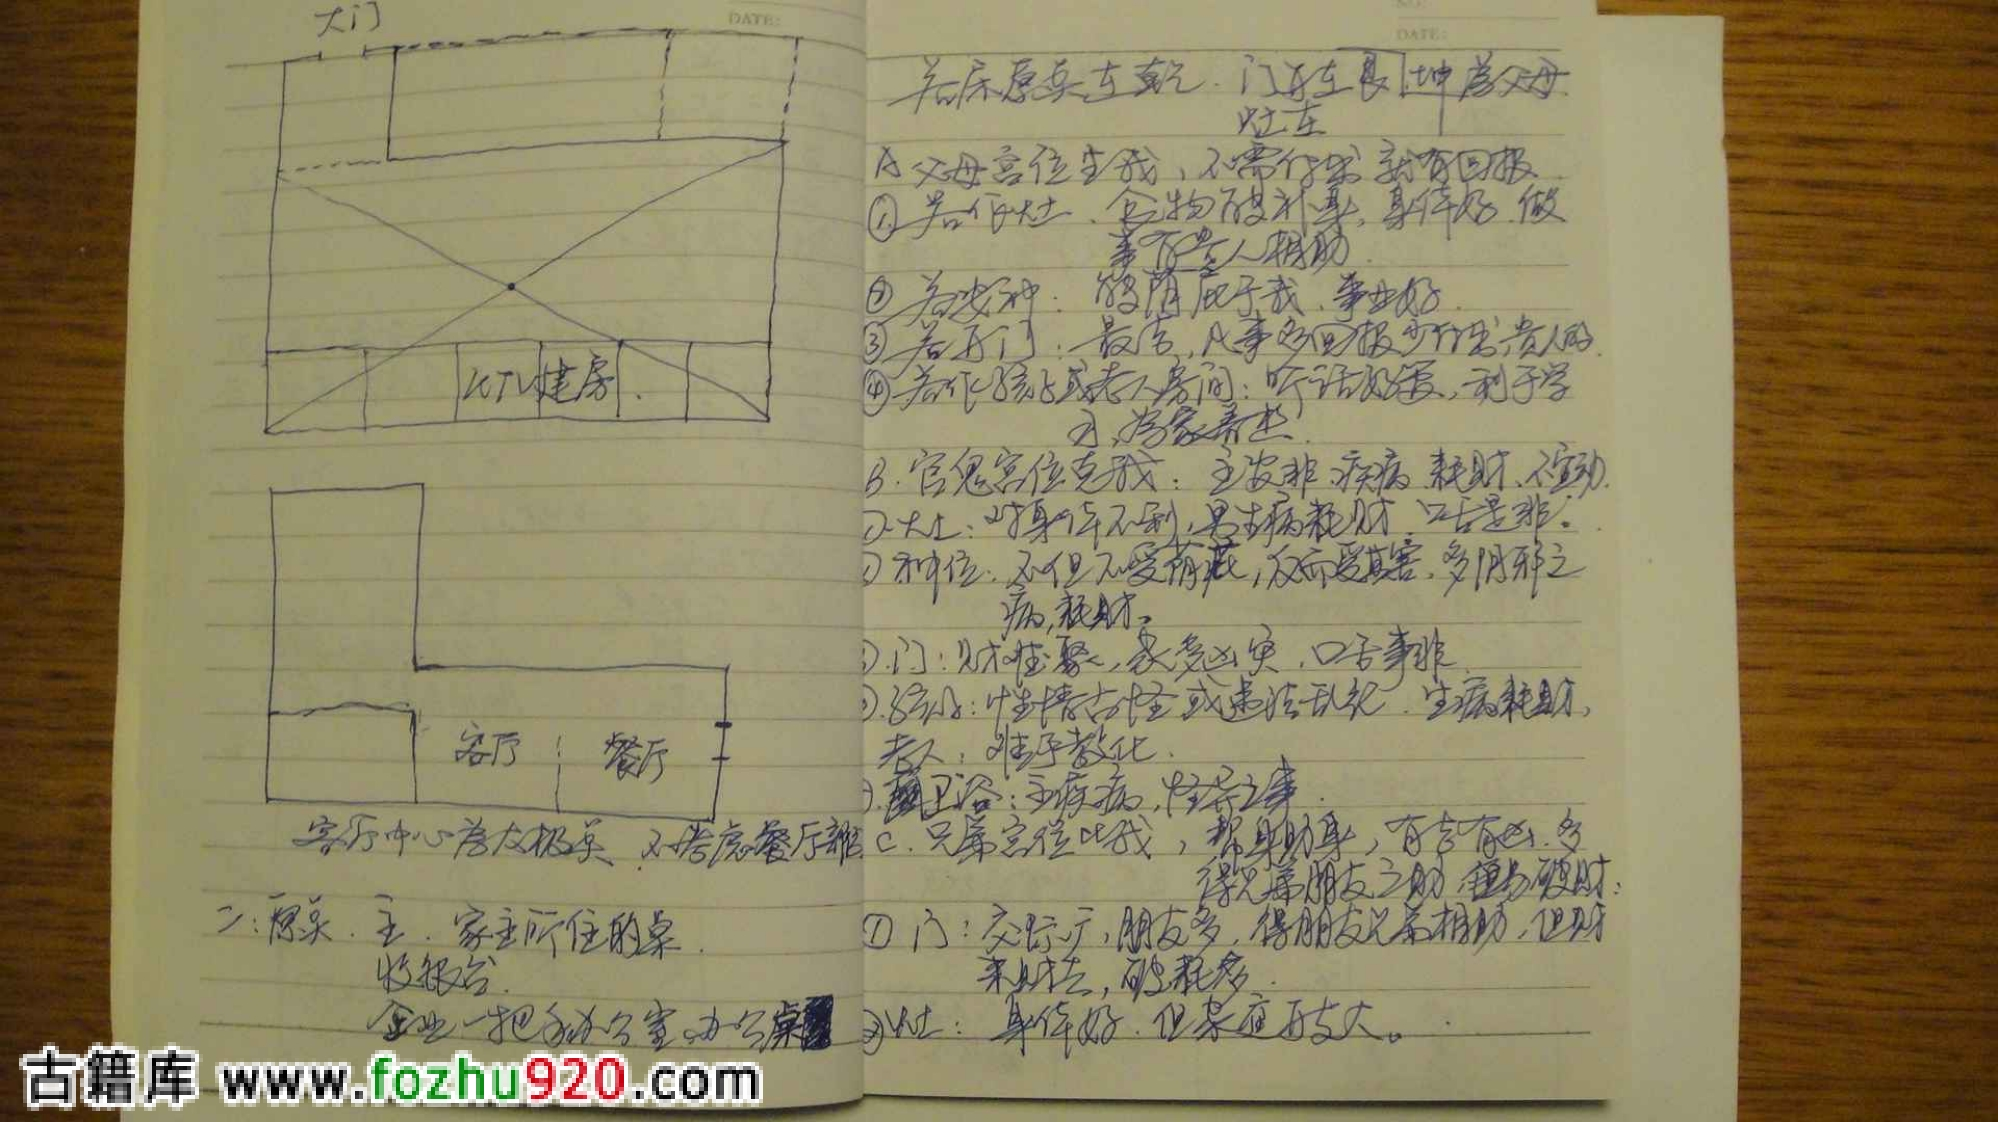 DATE:
大门
KTV建房
客厅
餐厅
客厅中心为太极点,不考虑餐厅
二:原点.主.家主所住的桌.
收银台.
企业一把手办公室、办公桌
DATE:
若床原点在乾.门开在艮 坤为父母
灶在
A 父母宫位生我,不需付出就有回报
① 若作灶、食物能补身,身体好.做
事有贵人相助.
② 若安神:能荫庇于我、事业好.
③ 若开门:最吉,凡事多回报少付出,贵人
④ 若作孩子或老人房间:听话好教,利于学
习,
B.官鬼宫位克我:主是非、疾病、耗财、不
灶:对身体不利,易生病耗财、口舌是非。
神位:不但不受荫庇,反而受其害,多阴邪之
病,耗财。
门:财难聚,家多凶灾,口舌事非
孩子:性情古怪或违法乱纪.生病耗财,
老人:难于教化.
卫浴:主疾病,怪异之事.
C.兄弟宫位比我,帮身助身,有吉有凶.多
得兄弟朋友之助,但易破财:
① 门:交际广,朋友多,得朋友兄弟相助,但财
来财去,破耗多.
② 灶:身体好.但家庭开支大。
古籍库 www.fozhu920.com